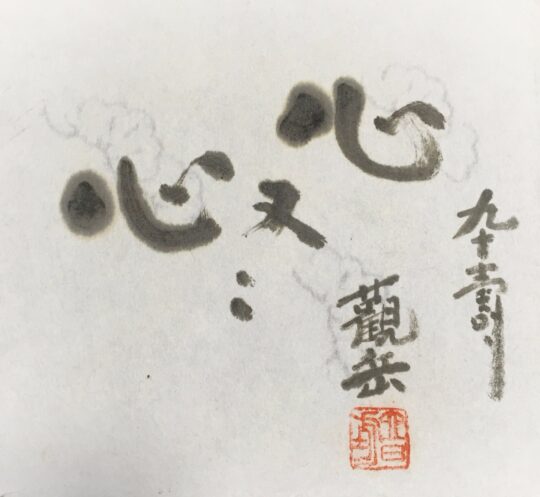 心
又
心
九十壽
觀岳